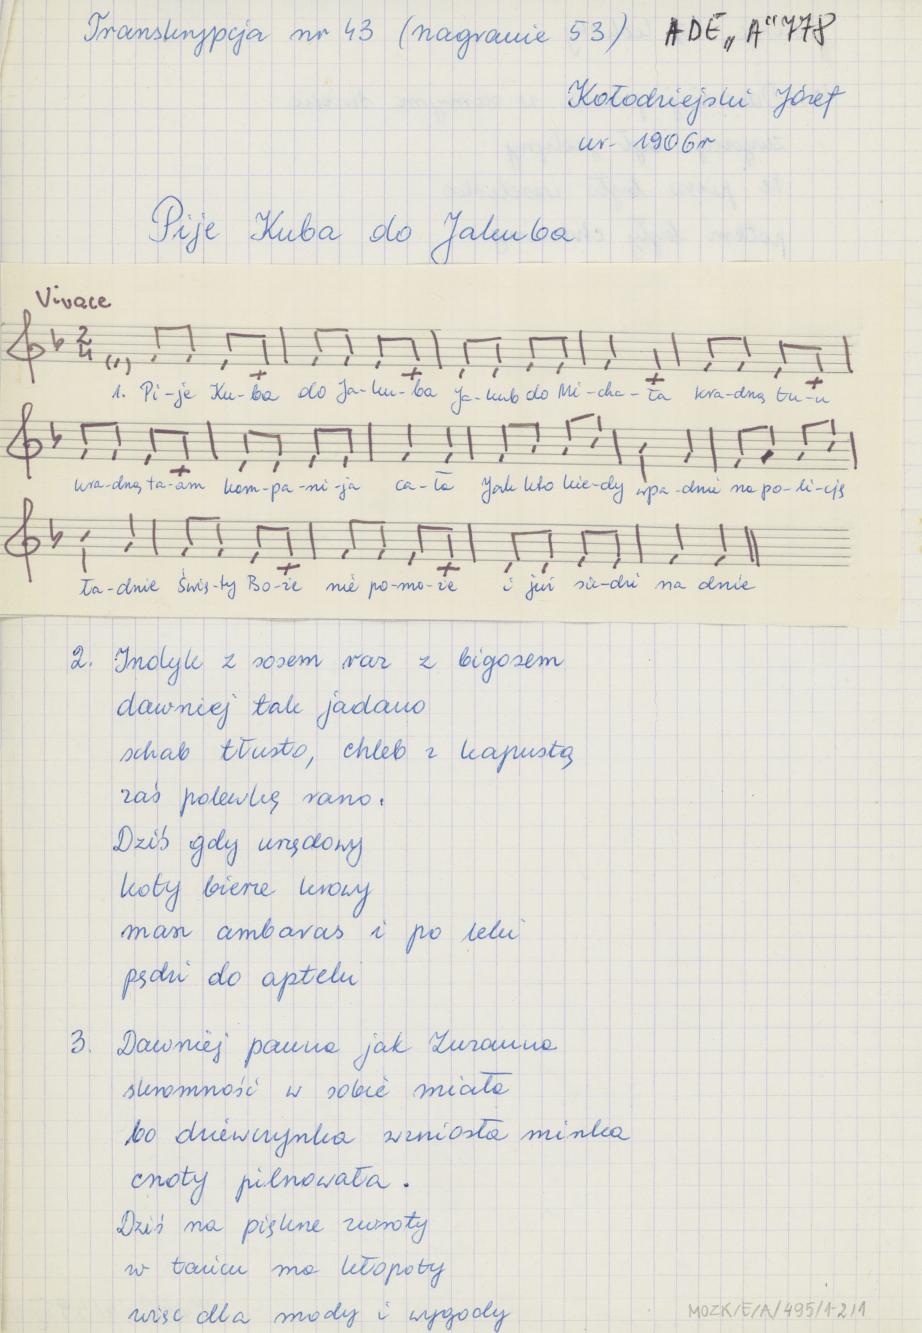 Transkrypcja nr 43 (nagranie 53) ADE "A" 778
Kołodziejski Józef
ur. 1906r
Pije Kuba do Jakuba
Vivace
2
4
1. Pi-je Ku-ba do Ja-ku-ba Ja-kub do Mi-cha-ła kra-dną tu-u
kra-dną ta-am kom-pa-ni-ja ca-ła Jak kto kie-dy wpa-dnie na po-li-cję
ła-dnie Świę-ty Bo-że nie po-mo-że i już sie-dzi na dnie
2. Indyk z sosem raz z bigosem
dawniej tak jadano
schab tłusto, chleb z kapustą
zaś polewkę rano.
Dziś gdy urzędowy
koty bierze krowy
masz ambaras i po leki
pędzi do apteki
3. Dawniej panna jak Zuzanna
skromność w sobie miała
bo dziewczynka wzniosła minka
cnoty pilnowała.
Dziś na piękne zwroty
w tańcu ma kłopoty
więc dla mody i wygody
MOZK/E/A/495/1-2/1